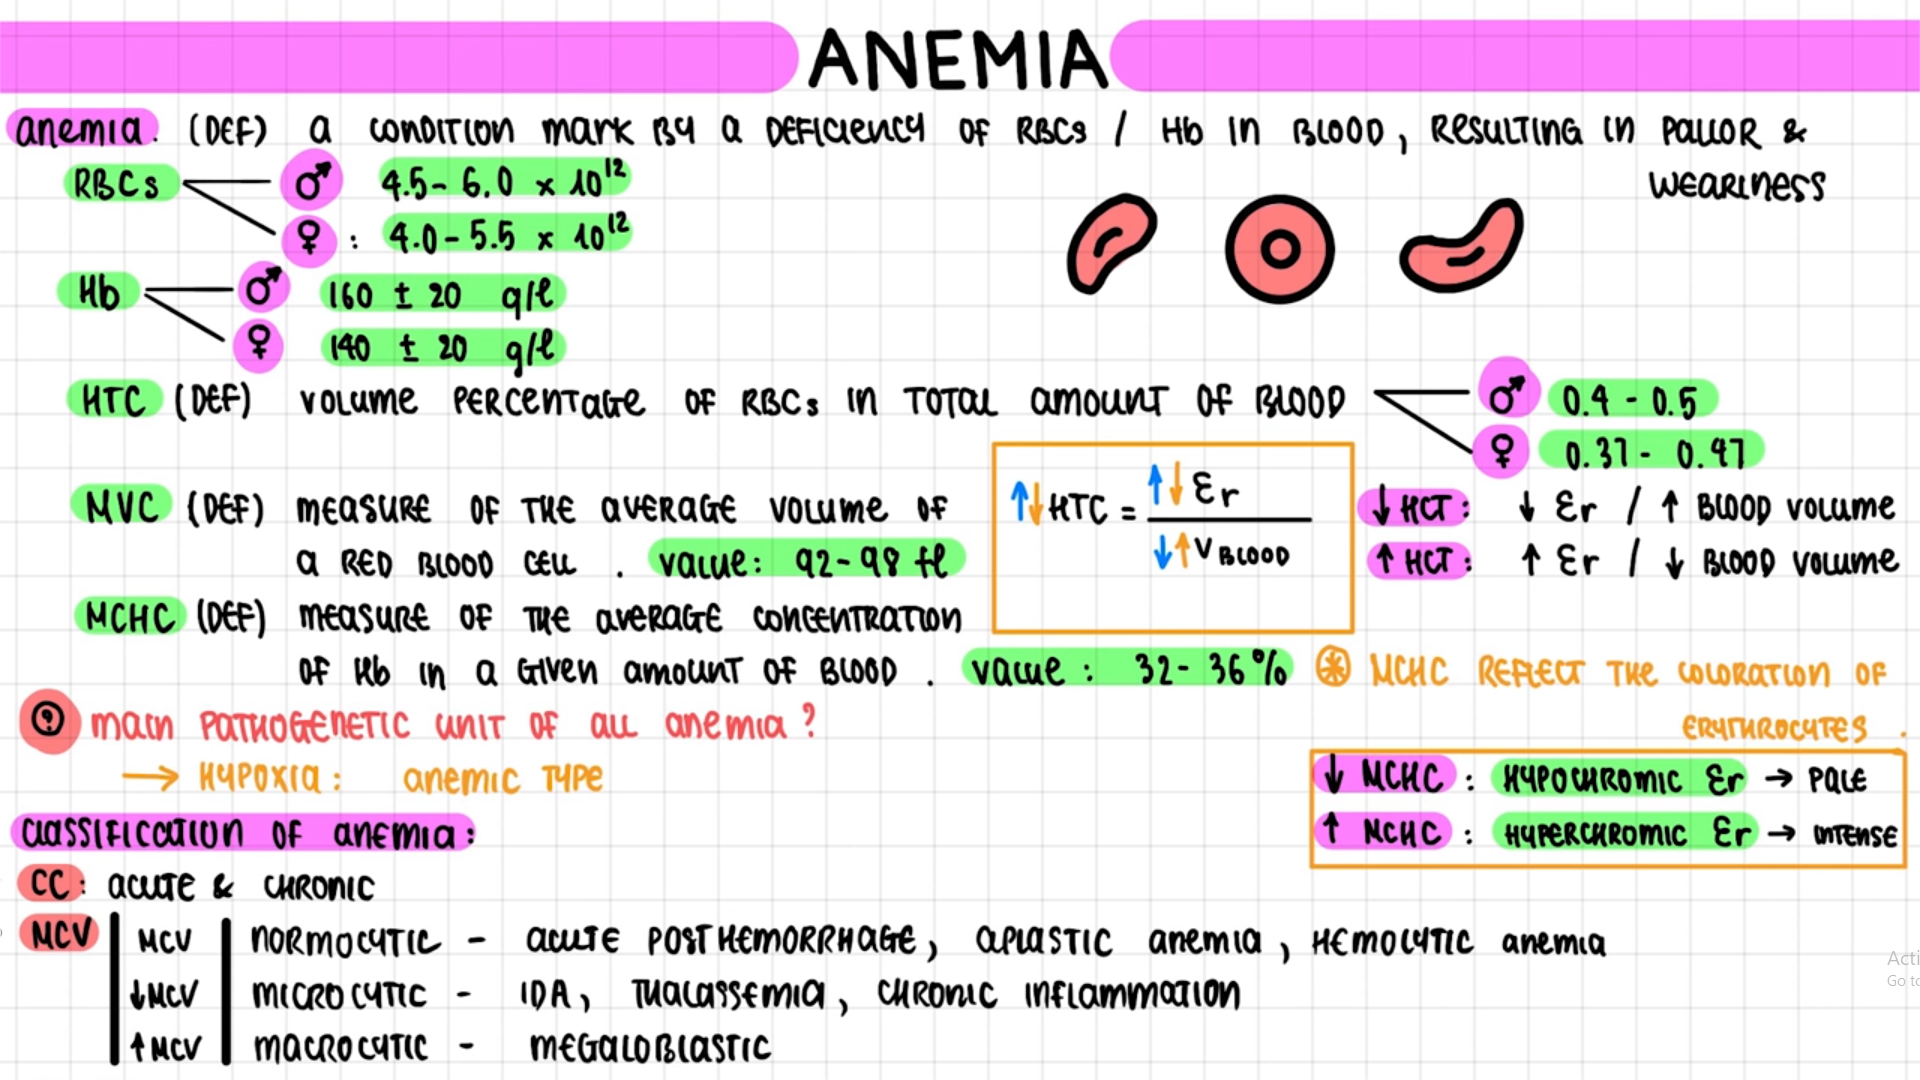 ANEMIA
anemia. (DEF) a CONDITION mark BY a DEFICIENCY OF RBCs / Hb IN BLOOD, RESULTING IN PALLOR &
WEARINESS
RBCs ♂ 4.5 - 6.0 x 10¹²
♀ : 4.0 - 5.5 x 10¹²
Hb ♂ 160 ± 20 g/l
♀ 140 ± 20 g/l
HTC (DEF) VOLUME PERCENTAGE OF RBCs IN TOTAL amount OF BLOOD ♂ 0.4 - 0.5
♀ 0.37 - 0.47
MVC (DEF) MEASURE OF THE AVERAGE VOLUME OF
a RED BLOOD CELL. value: 92-98 fl
↑↓ HTC = ↑↓ Er
↓↑ V BLOOD
↓ HCT: ↓ Er / ↑ BLOOD VOLUME
↑ HCT: ↑ Er / ↓ BLOOD VOLUME
MCHC (DEF) MEASURE OF THE AVERAGE CONCENTRATION
OF Hb IN a GIVEN amount OF BLOOD. value: 32-36%
MCHC REFLECT THE COLORATION OF
ERYTHROCYTES.
? main PATHOGENETIC UNIT OF all anemia?
→ HYPOXIA: anemic TYPE
↓ MCHC: HYPOCHROMIC Er → PALE
↑ MCHC: HYPERCHROMIC Er → INTENSE
CLASSIFICATION OF anemia:
CC: ACUTE & CHRONIC
MCV MCV NORMOCYTIC - ACUTE POSTHEMORRHAGE, APLASTIC anemia, HEMOLYTIC anemia
↓MCV MICROCYTIC - IDA, THALASSEMIA, CHRONIC INFLAMMATION
↑MCV MACROCYTIC - MEGALOBLASTIC
Acti
Go to